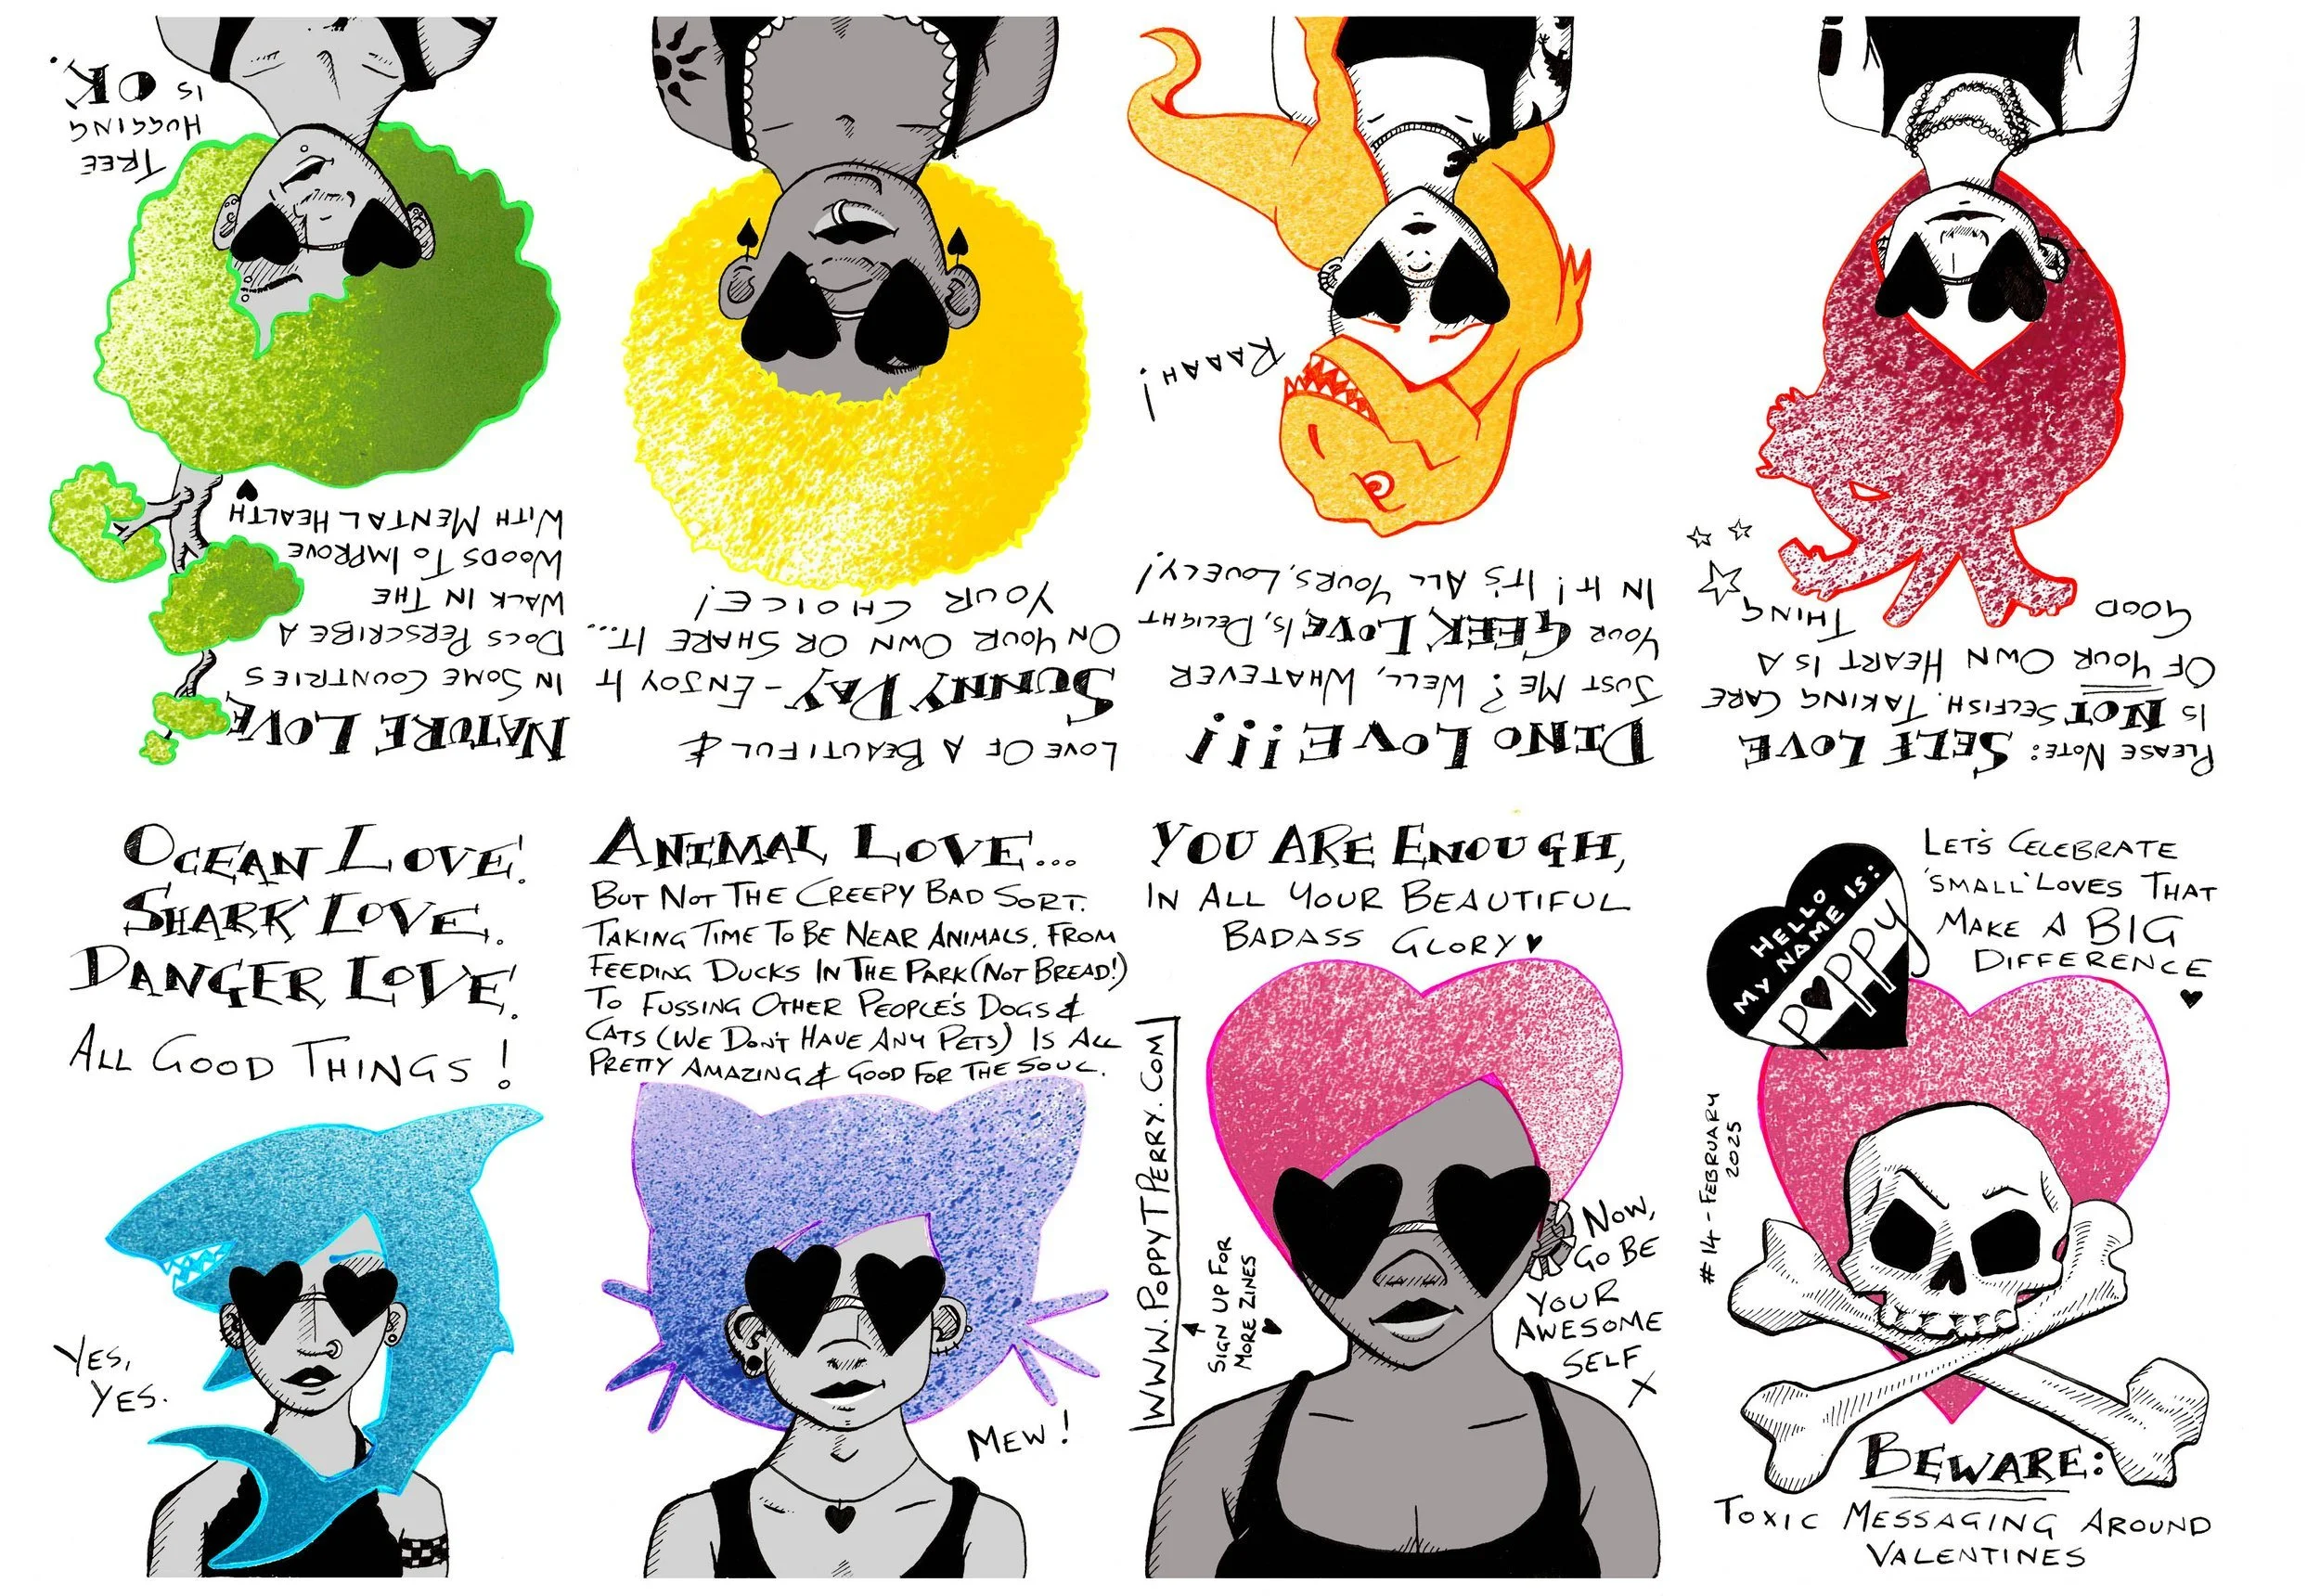 NATURE LOVE
IN SOME COUNTRIES
DOCS PERSCRIBE A
WALK IN THE
WOODS TO IMPROVE
WITH MENTAL HEALTH
TREE
HUGGING
IS OK.
LOVE OF A BEAUTIFUL &
SUNNY DAY - ENJOY IT
ON YOUR OWN OR SHARE IT...
YOUR CHOICE!
DINO LOVE!!!
JUST ME? WELL, WHATEVER
YOUR GEEK LOVE IS, DELIGHT
IN IT! IT'S ALL YOURS, LOVELY!
RAAAH!
PLEASE NOTE: SELF LOVE
IS NOT SELFISH. TAKING CARE
OF YOUR OWN HEART IS A
GOOD THING
OCEAN LOVE.
SHARK LOVE.
DANGER LOVE.
ALL GOOD THINGS!
YES,
YES.
ANIMAL LOVE...
BUT NOT THE CREEPY BAD SORT.
TAKING TIME TO BE NEAR ANIMALS, FROM
FEEDING DUCKS IN THE PARK (NOT BREAD!)
TO FUSSING OTHER PEOPLE'S DOGS &
CATS (WE DON'T HAVE ANY PETS) IS ALL
PRETTY AMAZING & GOOD FOR THE SOUL.
MEW!
YOU ARE ENOUGH,
IN ALL YOUR BEAUTIFUL
BADASS GLORY ♥
WWW.POPPYTPERRY.COM
SIGN UP FOR
MORE ZINES
NOW,
GO BE
YOUR
AWESOME
SELF
X
HELLO
MY NAME IS:
POPPY
LET'S CELEBRATE
'SMALL' LOVES THAT
MAKE A BIG
DIFFERENCE
#14 - FEBRUARY
2025
BEWARE:
TOXIC MESSAGING AROUND
VALENTINES